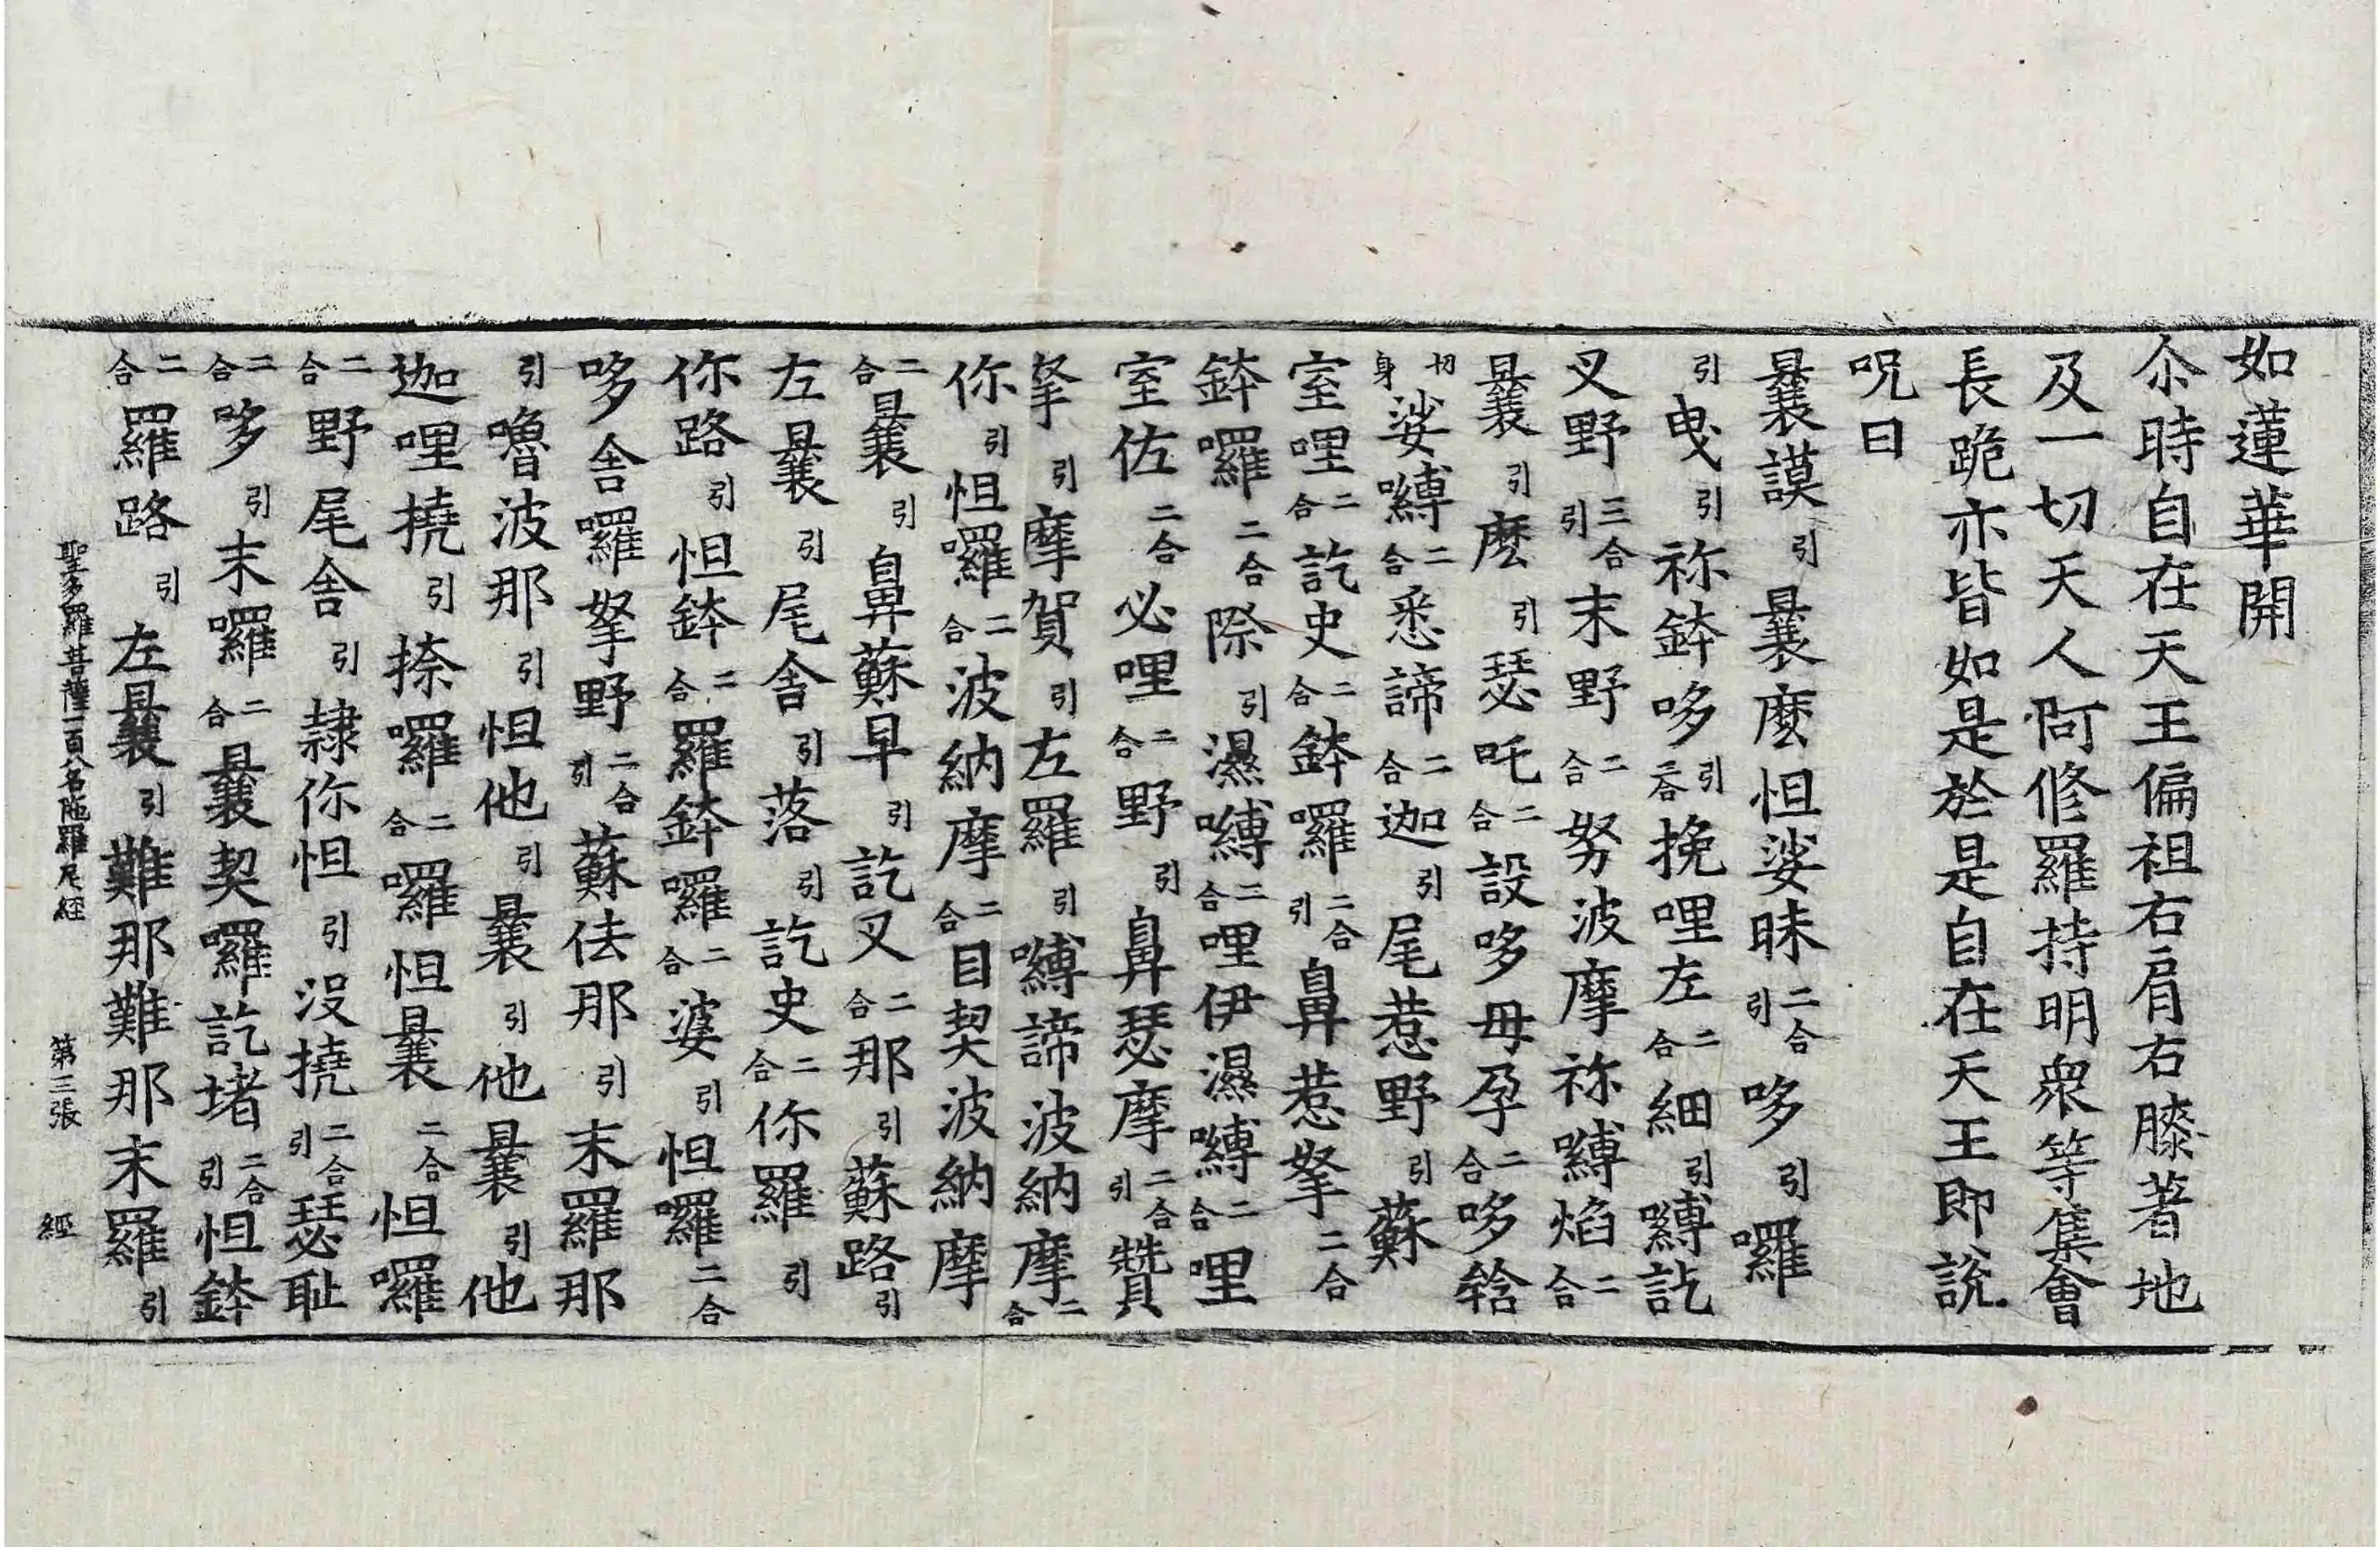 如蓮華開
尒時自在天王偏袒右肩右膝著地
及一切天人阿修羅持明衆等集會
長跪亦皆如是於是自在天王即說
呪曰
曩謨引曩麼怛娑昧二合引哆引囉
引曳引祢鉢哆引二合挽哩左二合細引嚩訖
叉野三合引末野二合努波摩祢嚩焰二合
曩引麽引瑟吒二合設哆母孕二合哆䅥
切身娑嚩二合悉諦二合迦引尾惹野引蘇
室哩二合訖史二合鉢囉二合引鼻惹拏二合
鉢囉二合際引濕嚩二合哩伊濕嚩二合哩
室佐二合必哩二合野引鼻瑟摩二合引贊
拏引摩賀引左羅引嚩諦波納摩二合
你引怛囉二合波納摩二合目契波納摩
二合曩引鼻蘇早引訖叉二合那引蘇路引
左曩引尾舍引落引訖史二合你羅引
你路引怛鉢二合羅鉢囉二合婆引怛囉二合
哆舍囉拏野二合引蘇佉那引末羅那
引嚕波那引怛他引曩引他曩引他
迦哩撓引捺囉二合囉怛曩二合怛囉
二合野尾舍引隷你怛引沒撓二合引瑟耻
二合哆引末囉二合曩契囉訖堵二合引怛鉢
二合羅路引左曩引難那難那末羅引
聖多羅菩薩一百八名陁羅尼經 第三張 經